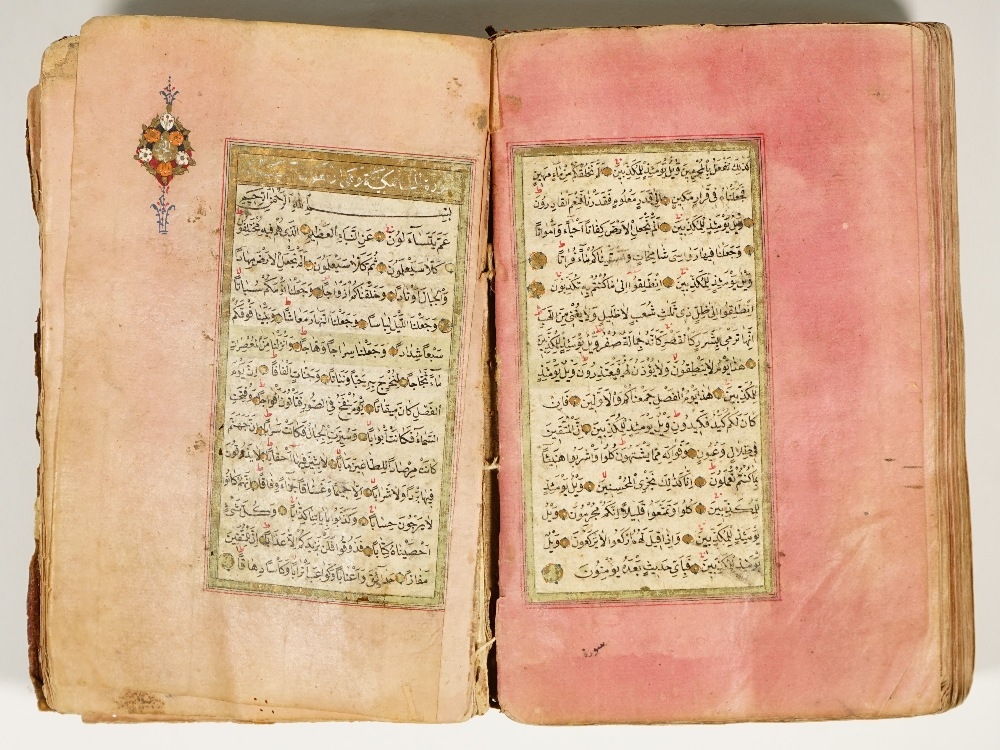 كَذلِكَ نَفْعَلُ بِالْمُجْرِمِينَ وَيْلٌ يَوْمَئِذٍ لِلْمُكَذِّبِينَ اَلَمْ نَخْلُقْكُمْ مِنْ مَاءٍ مَهِينٍ
فَجَعَلْنَاهُ فِي قَرَارٍ مَكِينٍ اِلٰى قَدَرٍ مَعْلُومٍ فَقَدَرْنَا فَنِعْمَ الْقَادِرُونَ
وَيْلٌ يَوْمَئِذٍ لِلْمُكَذِّبِينَ اَلَمْ نَجْعَلِ الْاَرْضَ كِفَاتًا اَحْيَاءً وَاَمْوَاتًا
وَجَعَلْنَا فِيهَا رَوَاسِيَ شَامِخَاتٍ وَاَسْقَيْنَاكُمْ مَاءً فُرَاتًا
وَيْلٌ يَوْمَئِذٍ لِلْمُكَذِّبِينَ اِنْطَلِقُوا اِلٰى مَا كُنْتُمْ بِهِ تُكَذِّبُونَ
اِنْطَلِقُوا اِلٰى ظِلٍّ ذِي ثَلٰثِ شُعَبٍ لَا ظَلِيلٍ وَلَا يُغْنِي مِنَ اللَّهَبِ
اِنَّهَا تَرْمِي بِشَرَرٍ كَالْقَصْرِ كَاَنَّهُ جِمَالَةٌ صُفْرٌ وَيْلٌ يَوْمَئِذٍ لِلْمُكَذِّبِينَ
هٰذَا يَوْمُ لَا يَنْطِقُونَ وَلَا يُؤْذَنُ لَهُمْ فَيَعْتَذِرُونَ وَيْلٌ يَوْمَئِذٍ
لِلْمُكَذِّبِينَ هٰذَا يَوْمُ الْفَصْلِ جَمَعْنَاكُمْ وَالْاَوَّلِينَ فَاِنْ
كَانَ لَكُمْ كَيْدٌ فَكِيدُونِ وَيْلٌ يَوْمَئِذٍ لِلْمُكَذِّبِينَ اِنَّ الْمُتَّقِينَ
فِي ظِلَالٍ وَعُيُونٍ وَفَوَاكِهَ مِمَّا يَشْتَهُونَ كُلُوا وَاشْرَبُوا هَنِيئًا
بِمَا كُنْتُمْ تَعْمَلُونَ اِنَّا كَذٰلِكَ نَجْزِي الْمُحْسِنِينَ وَيْلٌ يَوْمَئِذٍ
لِلْمُكَذِّبِينَ كُلُوا وَتَمَتَّعُوا قَلِيلًا اِنَّكُمْ مُجْرِمُونَ وَيْلٌ
يَوْمَئِذٍ لِلْمُكَذِّبِينَ وَاِذَا قِيلَ لَهُمُ ارْكَعُوا لَا يَرْكَعُونَ وَيْلٌ
يَوْمَئِذٍ لِلْمُكَذِّبِينَ فَبِاَيِّ حَدِيثٍ بَعْدَهُ يُؤْمِنُونَ
سورة
بِسْمِ اللهِ الرَّحْمٰنِ الرَّحِيمِ
عَمَّ يَتَسَاءَلُونَ عَنِ النَّبَاِ الْعَظِيمِ اَلَّذِي هُمْ فِيهِ مُخْتَلِفُونَ
كَلَّا سَيَعْلَمُونَ ثُمَّ كَلَّا سَيَعْلَمُونَ اَلَمْ نَجْعَلِ الْاَرْضَ مِهَادًا
وَالْجِبَالَ اَوْتَادًا وَخَلَقْنَاكُمْ اَزْوَاجًا وَجَعَلْنَا نَوْمَكُمْ سُبَاتًا
وَجَعَلْنَا اللَّيْلَ لِبَاسًا وَجَعَلْنَا النَّهَارَ مَعَاشًا وَبَنَيْنَا فَوْقَكُمْ
سَبْعًا شِدَادًا وَجَعَلْنَا سِرَاجًا وَهَّاجًا وَاَنْزَلْنَا مِنَ الْمُعْصِرَاتِ
مَاءً ثَجَّاجًا لِنُخْرِجَ بِهِ حَبًّا وَنَبَاتًا وَجَنَّاتٍ اَلْفَافًا اِنَّ يَوْمَ
الْفَصْلِ كَانَ مِيقَاتًا يَوْمَ يُنْفَخُ فِي الصُّورِ فَتَأْتُونَ اَفْوَاجًا وَفُتِحَتِ
السَّمَاءُ فَكَانَتْ اَبْوَابًا وَسُيِّرَتِ الْجِبَالُ فَكَانَتْ سَرَابًا اِنَّ جَهَنَّمَ
كَانَتْ مِرْصَادًا لِلطَّاغِينَ مَاٰبًا لَابِثِينَ فِيهَا اَحْقَابًا لَا يَذُوقُونَ
فِيهَا بَرْدًا وَلَا شَرَابًا اِلَّا حَمِيمًا وَغَسَّاقًا جَزَاءً وِفَاقًا اِنَّهُمْ كَانُوا
لَا يَرْجُونَ حِسَابًا وَكَذَّبُوا بِاٰيَاتِنَا كِذَّابًا وَكُلَّ شَيْءٍ
اَحْصَيْنَاهُ كِتَابًا فَذُوقُوا فَلَنْ نَزِيدَكُمْ اِلَّا عَذَابًا اِنَّ لِلْمُتَّقِينَ
مَفَازًا حَدَائِقَ وَاَعْنَابًا وَكَوَاعِبَ اَتْرَابًا وَكَاْسًا دِهَاقًا